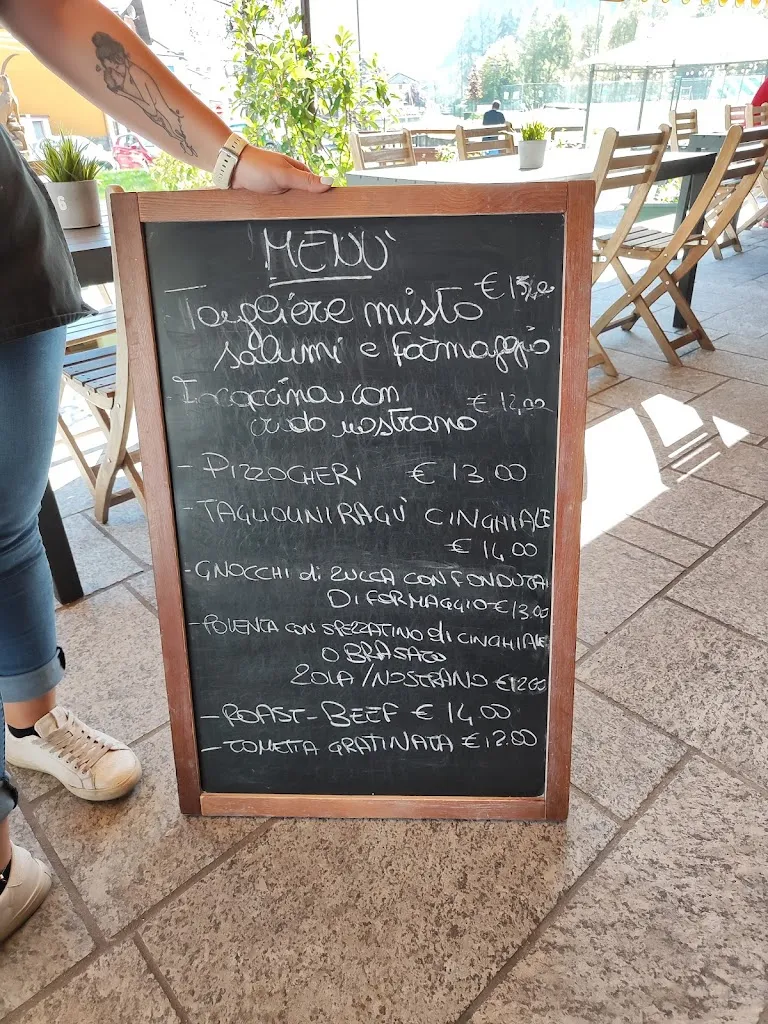 MENU'
Tagliere misto € 15,00
salumi e formaggio
con € 12,00
crudo nostrano
- PIZZOCHERI € 13.00
- TAGLIOLINI RAGU' CINGHIALE
€ 14.00
- GNOCCHI di ZUCCA CON FONDUTA
DI FORMAGGIO € 13.00
- POLENTA CON SPEZZATINO di CINGHIALE
O BRASATO
ZOLA / NOSTRANO € 12.00
- ROAST-BEEF € 14.00
- TOMETTA GRATINATA € 12.00
6